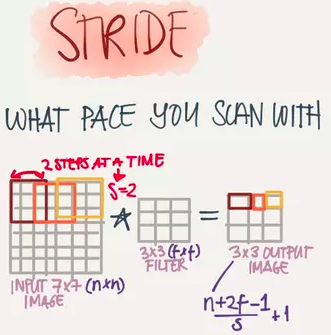 STRIDE
WHAT PACE YOU SCAN WITH
2 STEPS AT A TIME
S=2
INPUT 7x7 (n×n)
IMAGE
*
3x3 (f×f)
FILTER
=
3x3 OUTPUT
IMAGE
n+2f-1
s
+1